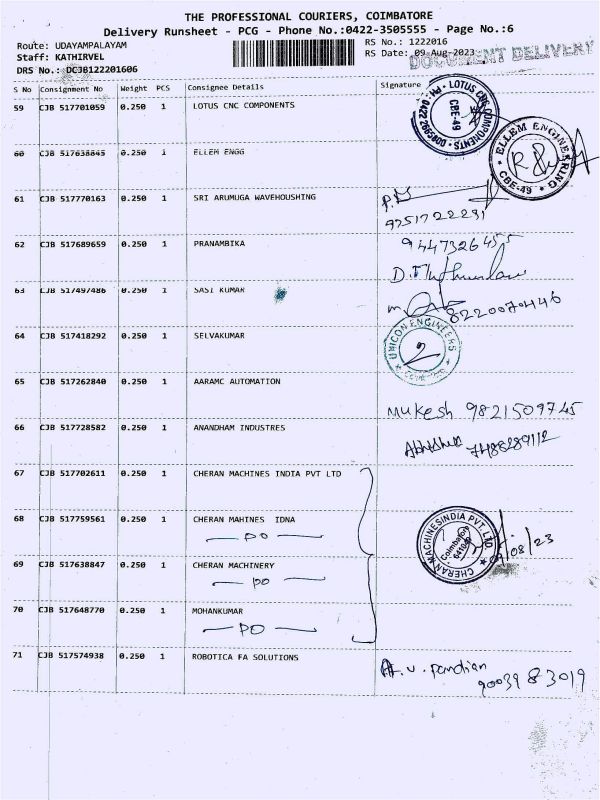 THE PROFESSIONAL COURIERS, COIMBATORE
Delivery Runsheet - PCG - Phone No.:0422-3505555 - Page No.:6
Route: UDAYAMPALAYAM
RS No.: 1222016
Staff: KATHIRVEL
RS Date: 09-Aug-2023
DOCUMENT DELIVERY
DRS No.: DCJB122201606
S No Consignment No Weight PCS Consignee Details Signature
59 CJB 517701059 0.250 1 LOTUS CNC COMPONENTS
LOTUS CNC COMPONENTS CBE-49
60 CJB 517638845 0.250 1 ELLEM ENGG
ELLEM ENGINEERING CBE-49
61 CJB 517770163 0.250 1 SRI ARUMUGA WAVEHOUSHING
9751722291
62 CJB 517689659 0.250 1 PRANAMBIKA
9447326455
63 CJB 517497486 0.250 1 SASI KUMAR
8220070446
64 CJB 517418292 0.250 1 SELVAKUMAR
UNICON ENGINEERS
65 CJB 517262840 0.250 1 AARAMC AUTOMATION
Mukesh 9821509745
66 CJB 517728582 0.250 1 ANANDHAM INDUSTRES
7488289112
67 CJB 517702611 0.250 1 CHERAN MACHINES INDIA PVT LTD
68 CJB 517759561 0.250 1 CHERAN MAHINES IDNA
CHERAN MACHINES INDIA PVT. LTD. Coimbatore
/08/23
— DO —
69 CJB 517638847 0.250 1 CHERAN MACHINERY
— DO —
70 CJB 517648770 0.250 1 MOHANKUMAR
— DO —
71 CJB 517574938 0.250 1 ROBOTICA FA SOLUTIONS
v. pandian
9003983019